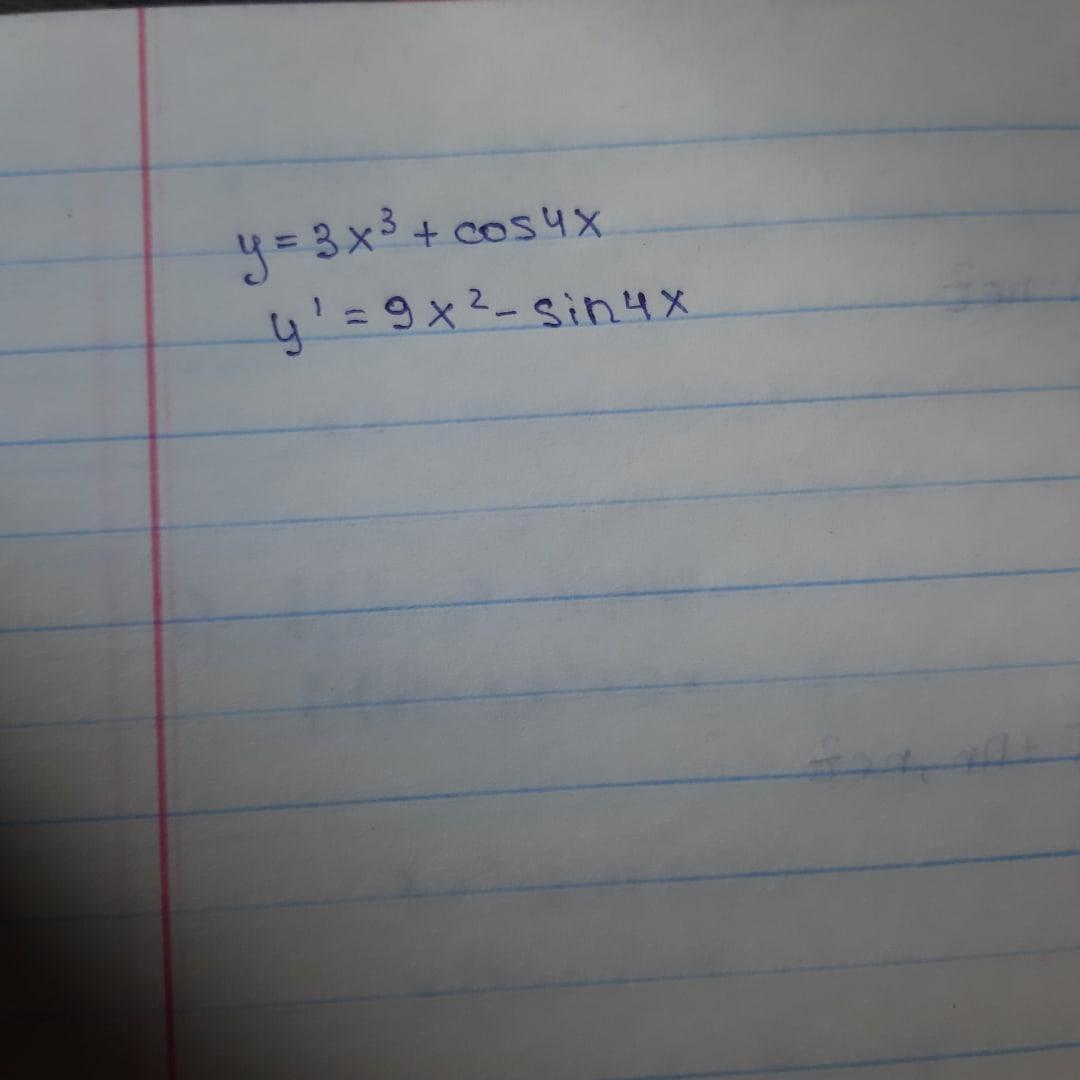 y = 3x³ + cos4x
y' = 9x² - sin4x